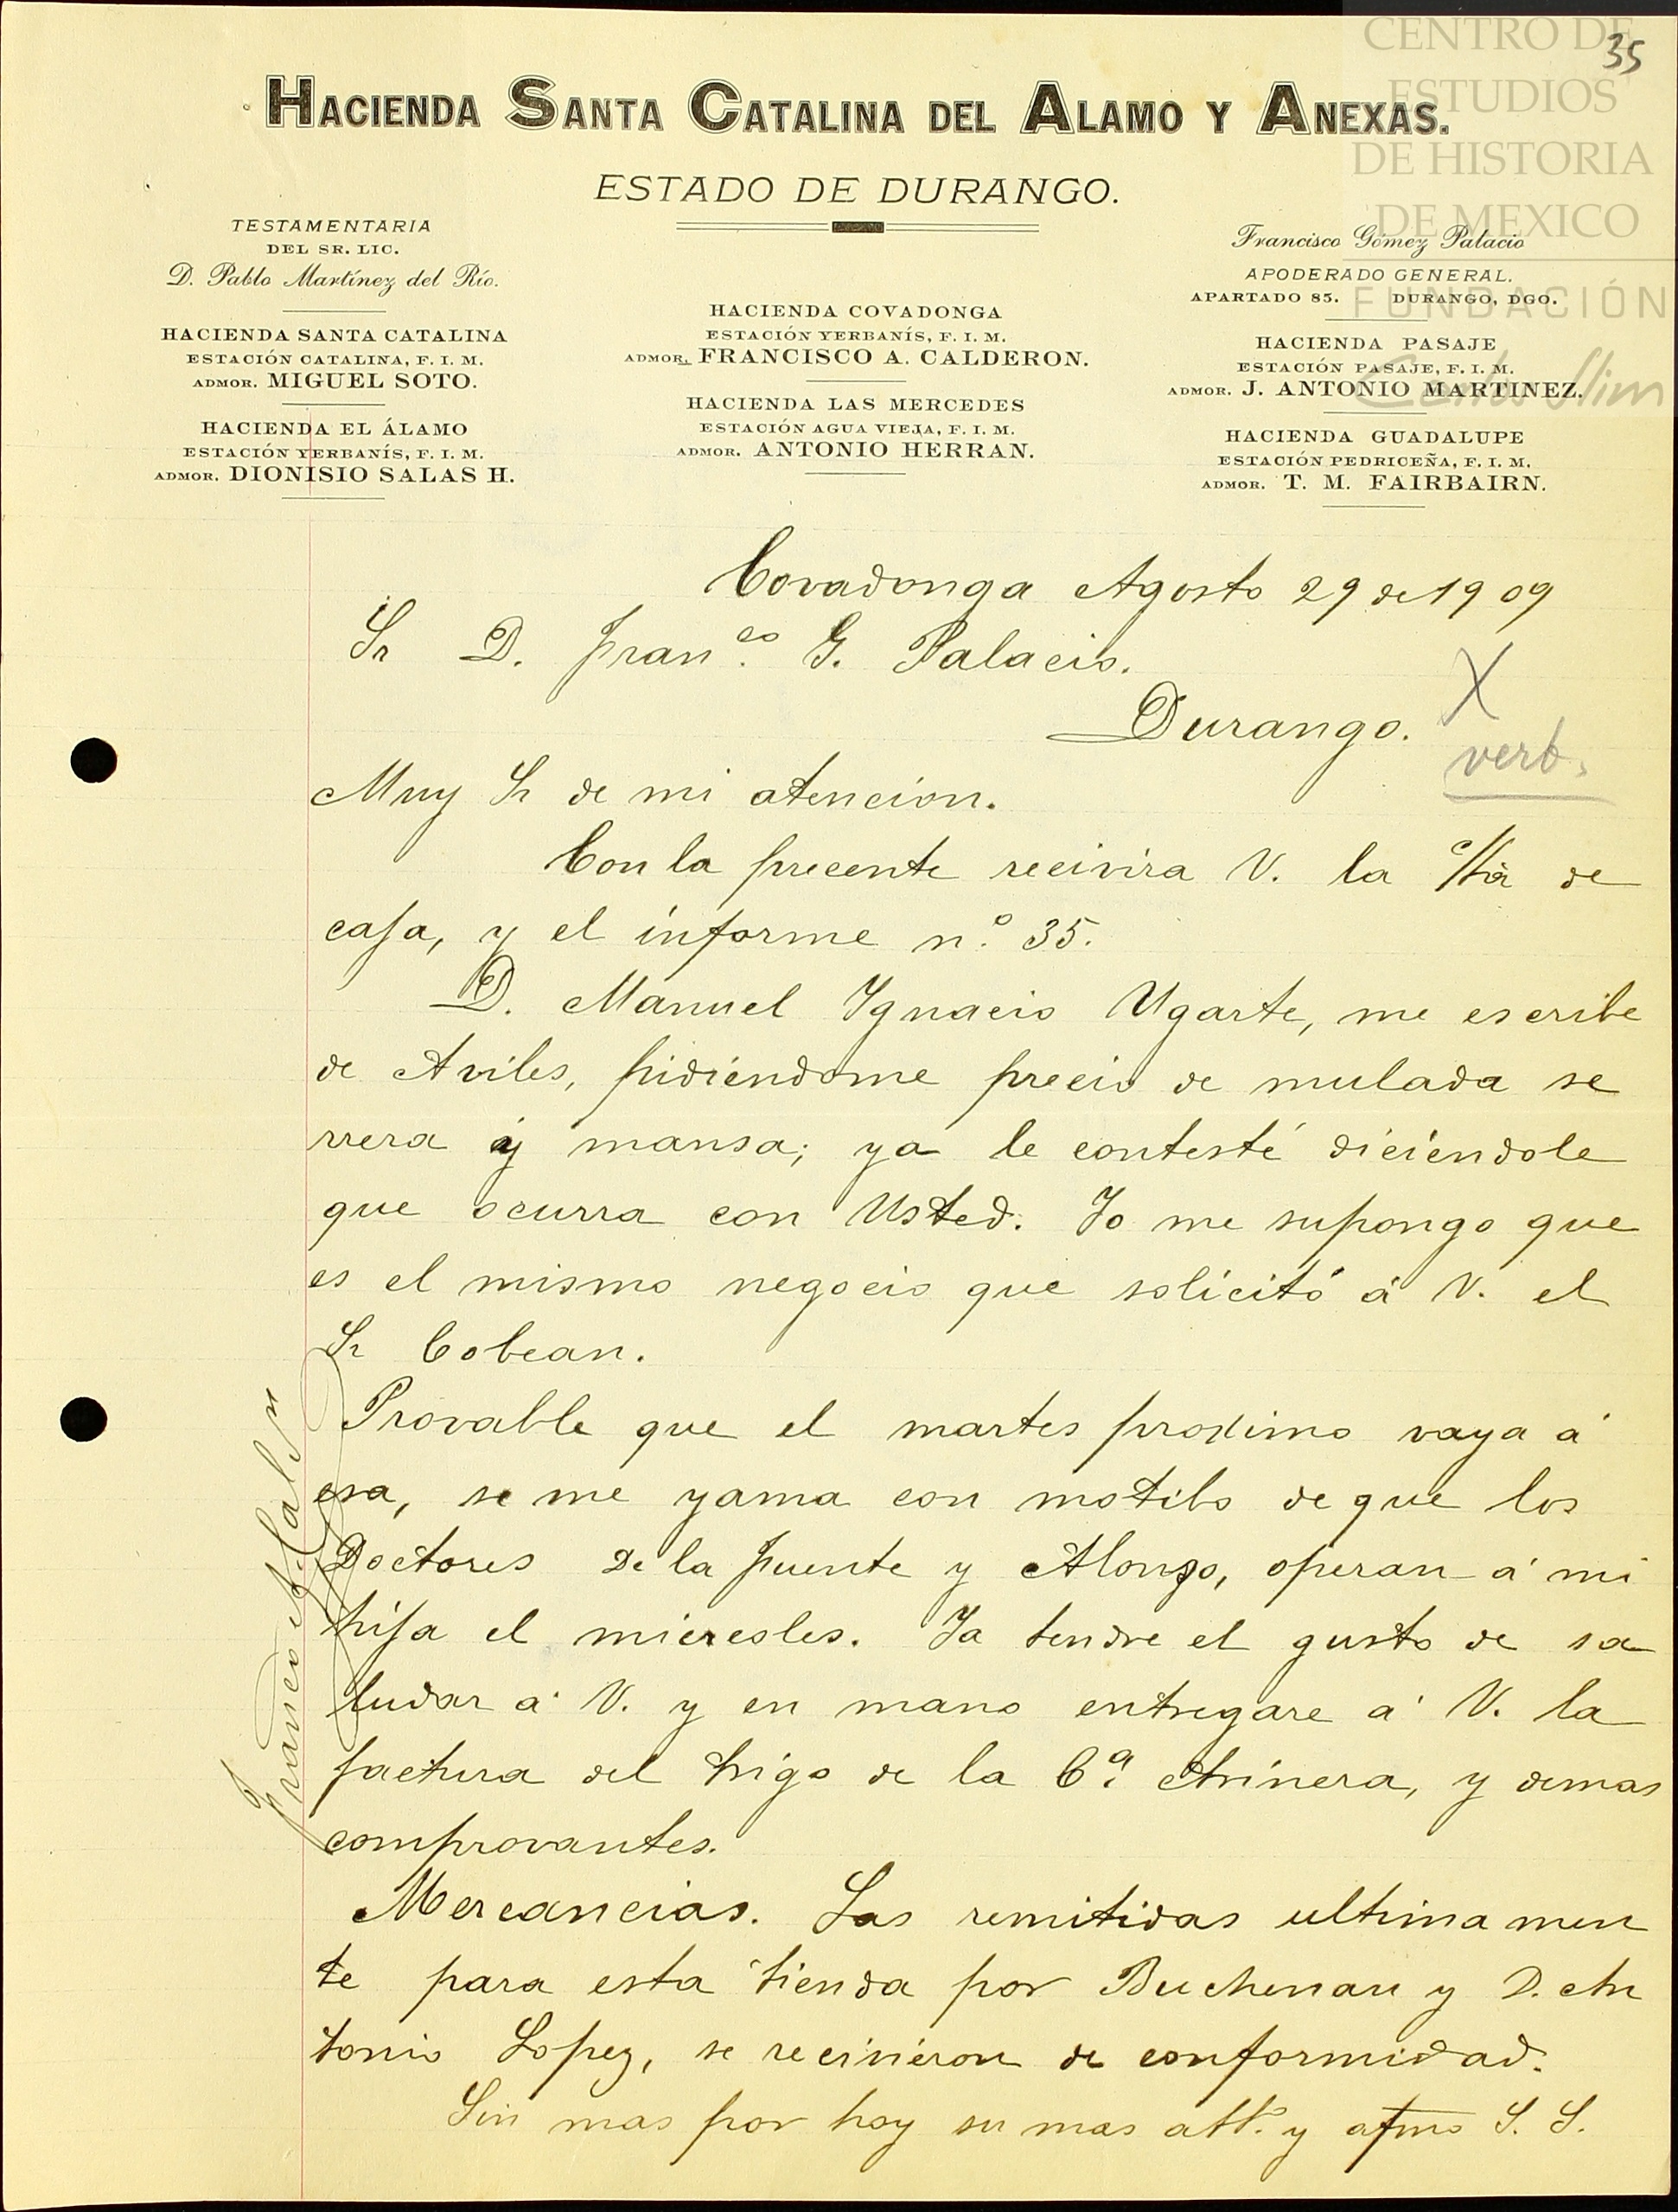 35
CENTRO DE
ESTUDIOS
DE HISTORIA
DE MEXICO
FUNDACIÓN
Carlos Slim
HACIENDA SANTA CATALINA DEL ALAMO Y ANEXAS.
ESTADO DE DURANGO.
TESTAMENTARIA
DEL SR. LIC.
D. Pablo Martínez del Río.
HACIENDA SANTA CATALINA
ESTACIÓN CATALINA, F. I. M.
ADMOR. MIGUEL SOTO.
HACIENDA EL ÁLAMO
ESTACIÓN YERBANÍS, F. I. M.
ADMOR. DIONISIO SALAS H.
HACIENDA COVADONGA
ESTACIÓN YERBANÍS, F. I. M.
ADMOR. FRANCISCO A. CALDERON.
HACIENDA LAS MERCEDES
ESTACIÓN AGUA VIEJA, F. I. M.
ADMOR. ANTONIO HERRAN.
Francisco Gómez Palacio
APODERADO GENERAL.
APARTADO 85. DURANGO, DGO.
HACIENDA PASAJE
ESTACIÓN PASAJE, F. I. M.
ADMOR. J. ANTONIO MARTINEZ.
HACIENDA GUADALUPE
ESTACIÓN PEDRICEÑA, F. I. M.
ADMOR. T. M. FAIRBAIRN.
Covadonga Agosto 29 de 1909
Sr D. Fran.co G. Palacio.
Durango.
X
verb.
Muy Sr de mi atencion.
Con la precente recivira V. la c/ta de
caja, y el informe n.º 35.
D. Manuel Ygnacio Ugarte, me escribe
de Aviles, pidiéndome precio de mulada se
rrera y mansa; ya le contesté diciéndole
que ocurra con Usted. Yo me supongo que
es el mismo negocio que solicitó á V. el
Sr Cobean.
Provable que el martes proximo vaya á
esa, se me yama con motibo de que los
Doctores De la Fuente y Alonzo, operan á mi
hija el miercoles. Ya tendre el gusto de sa
ludar á V. y en mano entregare á V. la
factura del trigo de la Cª. Arinera, y demas
comprovantes.
Mercancias. Las remitidas ultimamen
te para esta tienda por Buchenau y D. An
tonio Lopez, se recivieron de conformidad.
Sin mas por hoy su mas att.º y afmo S. S.
Franco A. Caldn